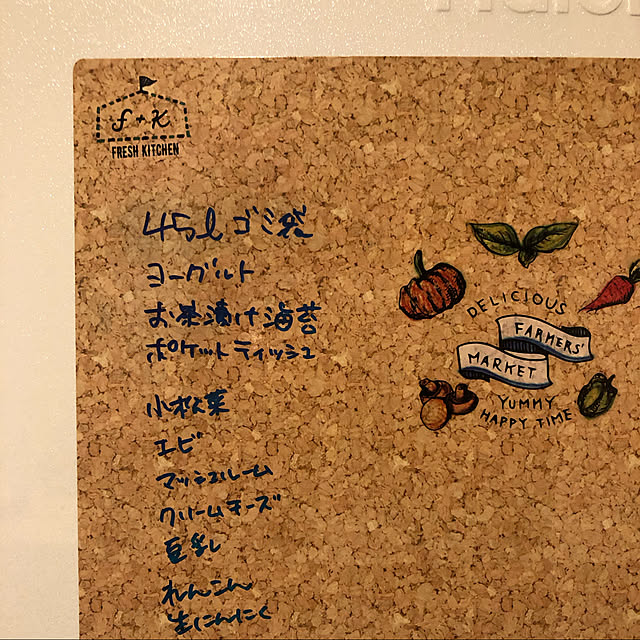 Haier
f n K
FRESH KITCHEN
45l ゴミ袋
ヨーグルト
お茶漬け海苔
ポケットティッシュ
小松菜
エビ
マッシュルーム
クリームチーズ
豆乳
れんこん
生にんにく
DELICIOUS
FARMERS'
MARKET
YUMMY
HAPPY TIME